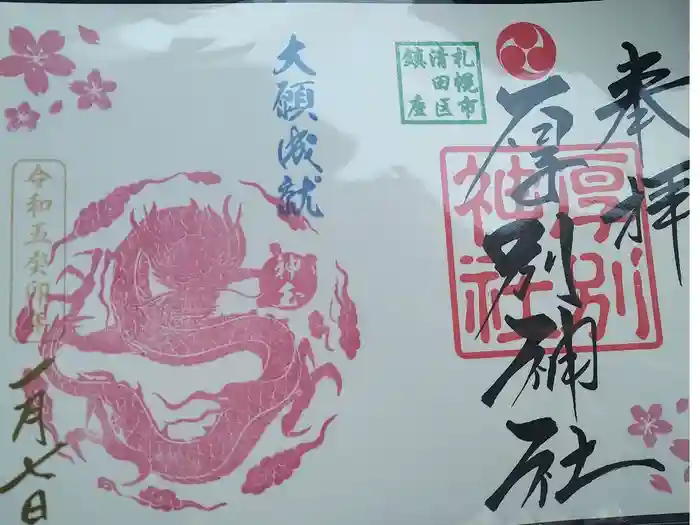 奉拝
厚別神社
厚別
神社
札幌市
清田区
鎮座
大願成就
神玉
令和五癸卯年
一月七日